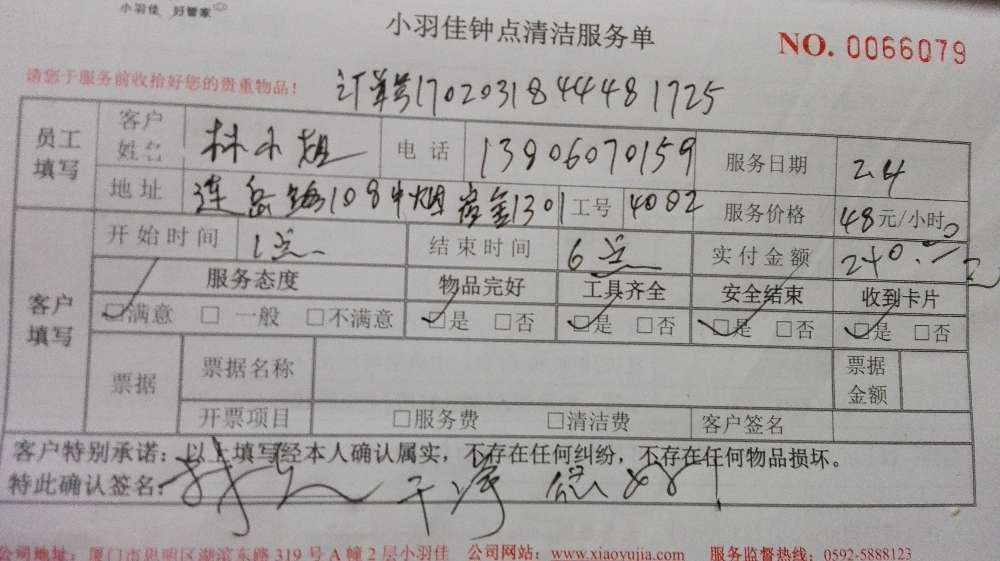 小羽佳 好管家
小羽佳钟点清洁服务单
NO. 0066079
请您于服务前收拾好您的贵重物品!
订单号1702031844481725
员工填写
客户姓名 林小姐 电话 13906070159 服务日期 2.4
地址 连岳路108中烟 1301 工号 4082 服务价格 48元/小时
客户填写
开始时间 1点 结束时间 6点 实付金额 240.
服务态度 物品完好 工具齐全 安全结束 收到卡片
☑满意 □一般 □不满意 ☑是 □否 ☑是 □否 ☑是 □否 ☑是 □否
票据 票据名称 票据金额
开票项目 □服务费 □清洁费 客户签名
客户特别承诺：以上填写经本人确认属实，不存在任何纠纷，不存在任何物品损坏。
特此确认签名: 干净
公司地址：厦门市思明区湖滨东路319号A幢2层小羽佳 公司网站：www.xiaoyujia.com 服务监督热线：0592-5888123